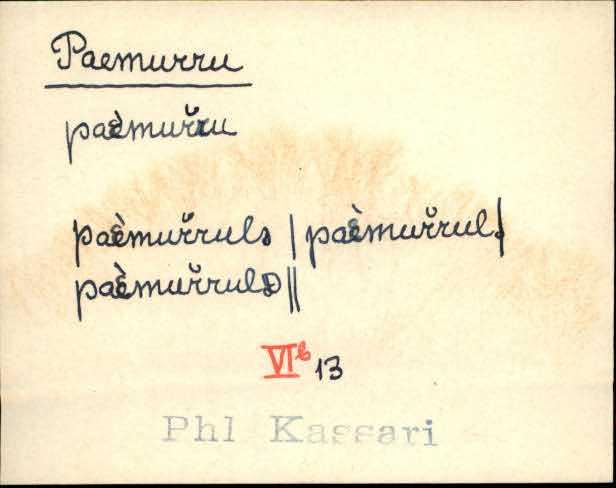 Paemurru
paèmur̆ru
paèmur̆rulə | paèmur̆rul.|
paèmur̆rulD ||
VIb 13
Phl Kassari